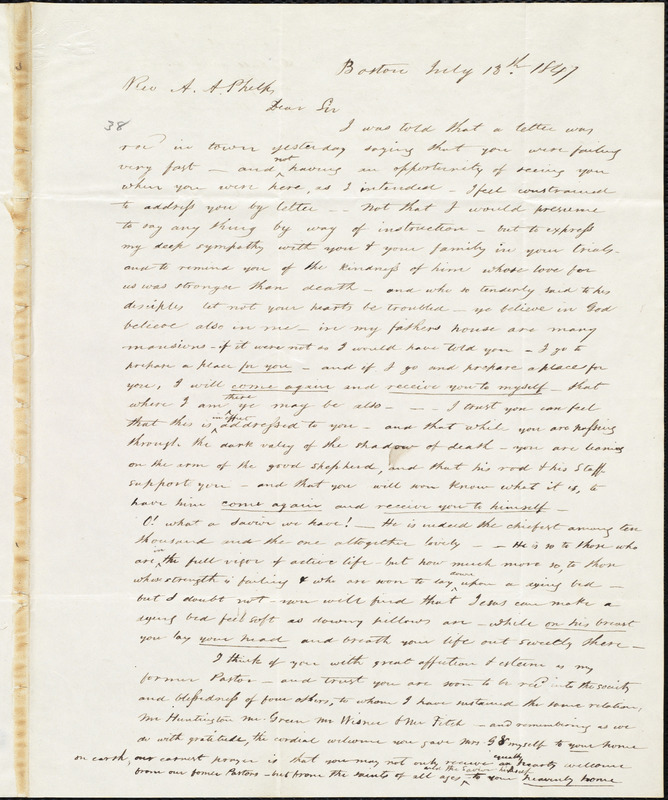 Boston July 13th. 1847
Rev A. A. Phelps,
Dear Sir
38
I was told that a letter was
rec'd in town yesterday saying that you were failing
very fast – and not having an opportunity of seeing you
when you were here, as I intended – I feel constrained
to address you by letter – – Not that I would presume
to say any thing by way of instruction – but to express
my deep sympathy with you & your family in your trials –
and to remind you of the kindness of him whose love for
us was stronger than death – and who so tenderly said to his
disciples let not your hearts be troubled – ye believe in God
believe also in me – in my fathers house are many
mansions – if it were not so I would have told you – I go to
prepare a place for you – and if I go and prepare a place for
you, I will come again and receive you to myself – that
where I am there ye may be also – – – I trust you can feel
that this is in effect addressed to you – and that while you are passing
through the dark valley of the shadow of death – you are leaning
on the arm of the good shepherd, and that his rod & his staff
support you – and that you will soon know what it is, to
have him come again and receive you to himself –
O! what a savior we have! – He is indeed the chiefest among ten
thousand and the one altogether lovely – – He is so to those who
are in the full vigor of active life – but how much more so, to those
whose strength is failing & who are soon to lay down upon a dying bed –
but I doubt not you will find that Jesus can make a
dying bed feel soft as downy pillows are – while on his breast
you lay your head and breath your life out sweetly there –
I think of you with great affection & esteem as my
former Pastor – and trust you are soon to be rec'd into the society
and blessedness of four others, to whom I have sustained the same relation,
Mr Huntington Mr Green Mr Wisner & Mr Fitch – and remembering as we
do with gratitude, the cordial welcome you gave Mrs G & myself to your home
on earth, our earnest prayer is that you may not only receive an equally hearty welcome
from our former Pastors – but from the saints of all ages and the Savior himself – to your heavenly home